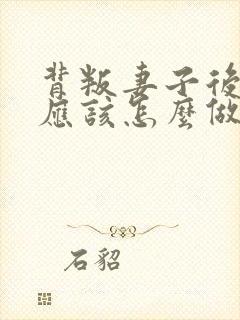 背叛妻子後
應該怎麼做
石貂